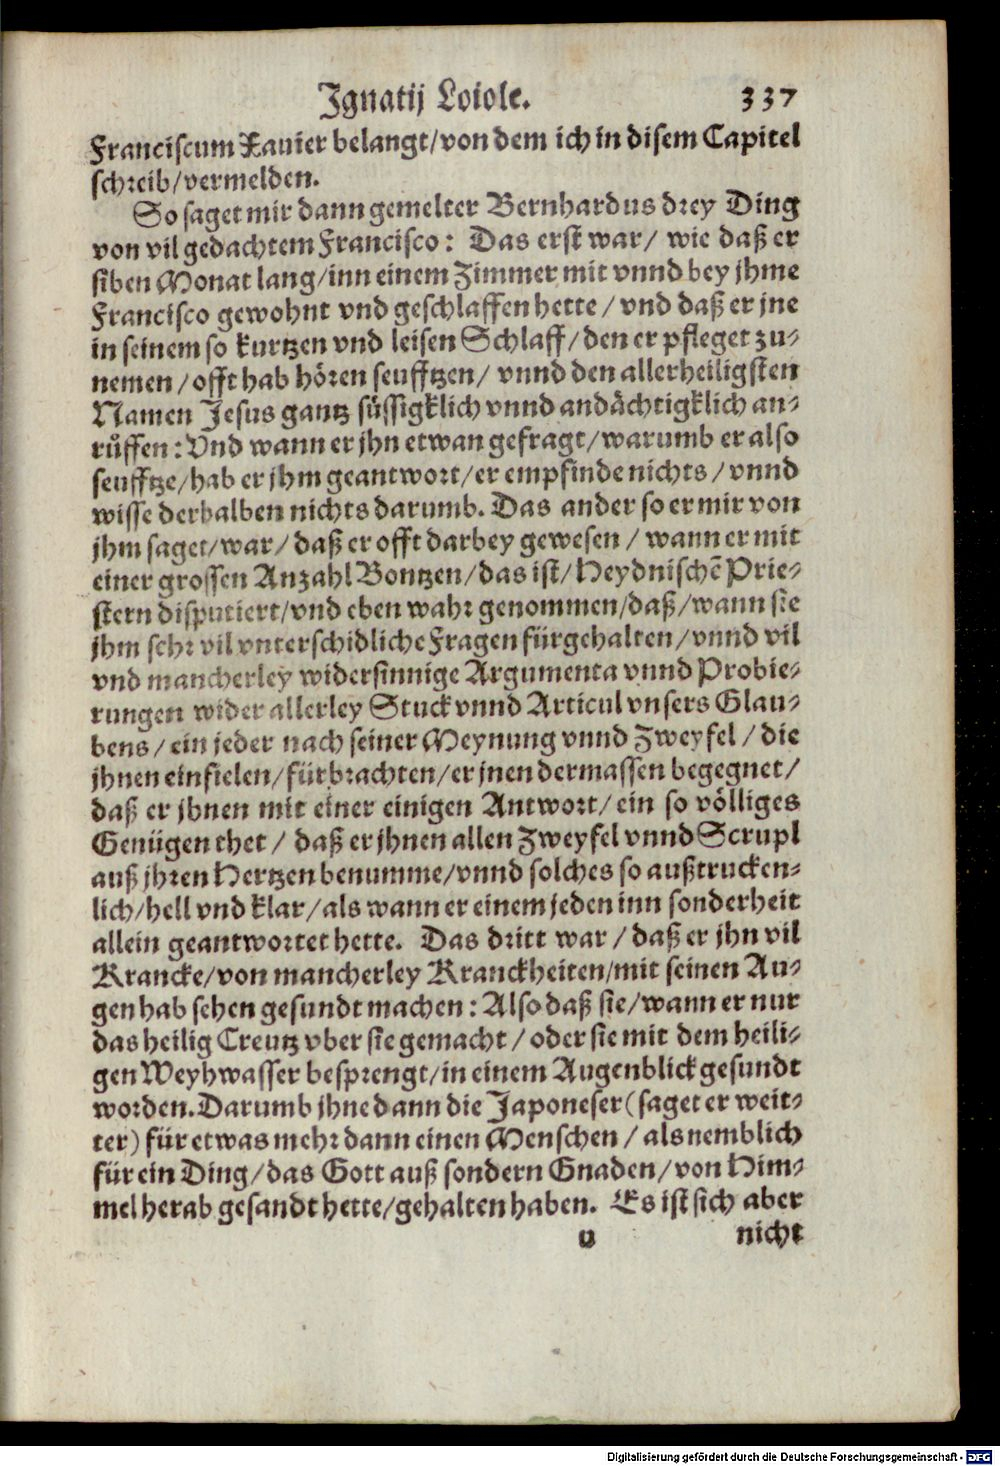 Ignatij Loiole. 337
Franciscum Xauier belangt/von dem ich in disem Capitel
schreib/vermelden.
So saget mir dann gemelter Bernhardus drey Ding
von vil gedachtem Francisco: Das erst war/ wie daß er
siben Monat lang/inn einem Zimmer mit vnnd bey jhme
Francisco gewohnt vnd geschlaffen hette/ vnd daß er jne
in seinem so kurtzen vnd leisen Schlaff/ den er pfleget zu-
nemen/ offt hab hören seufftzen/ vnnd den allerheiligsten
Namen Jesus gantz süssigklich vnnd andächtigklich an-
růffen: Vnd wann er jhn etwan gefragt/warumb er also
seufftze/hab er jhm geantwort/er empfinde nichts/ vnnd
wisse derhalben nichts darumb. Das ander so er mir von
jhm saget/war/ daß er offt darbey gewesen/ wann er mit
einer grossen Anzahl Bontzen/das ist/ Heydnischē Prie-
stern disputiert/vnd eben wahr genommen/daß/wann sie
jhm sehr vil vnterschidliche Fragen fürgehalten/vnnd vil
vnd mancherley widersinnige Argumenta vnnd Probie-
rungen wider allerley Stuck vnnd Articul vnsers Glau-
bens/ ein jeder nach seiner Meynung vnnd Zweyfel/ die
jhnen einfielen/fürbrachten/er jnen dermassen begegnet/
daß er jhnen mit einer einigen Antwort/ ein so völliges
Genügen thet/ daß er jhnen allen Zweyfel vnnd Scrupl
auß jhren Hertzen benumme/vnnd solches so außtrucken-
lich/hell vnd klar/als wann er einem jeden inn sonderheit
allein geantwortet hette. Das dritt war/ daß er jhn vil
Krancke/von mancherley Kranckheiten/mit seinen Au-
gen hab sehen gesundt machen: Also daß sie/wann er nur
das heilig Creutz vber sie gemacht/ oder sie mit dem heili-
gen Weyhwasser besprengt/in einem Augenblick gesundt
worden. Darumb jhne dann die Japoneser (saget er weit-
ter) für etwas mehr dann einen Menschen/ als nemblich
für ein Ding/das Gott auß sondern Gnaden/von Him-
mel herab gesandt hette/gehalten haben. Es ist sich aber
u nicht
Digitalisierung gefördert durch die Deutsche Forschungsgemeinschaft - DFG